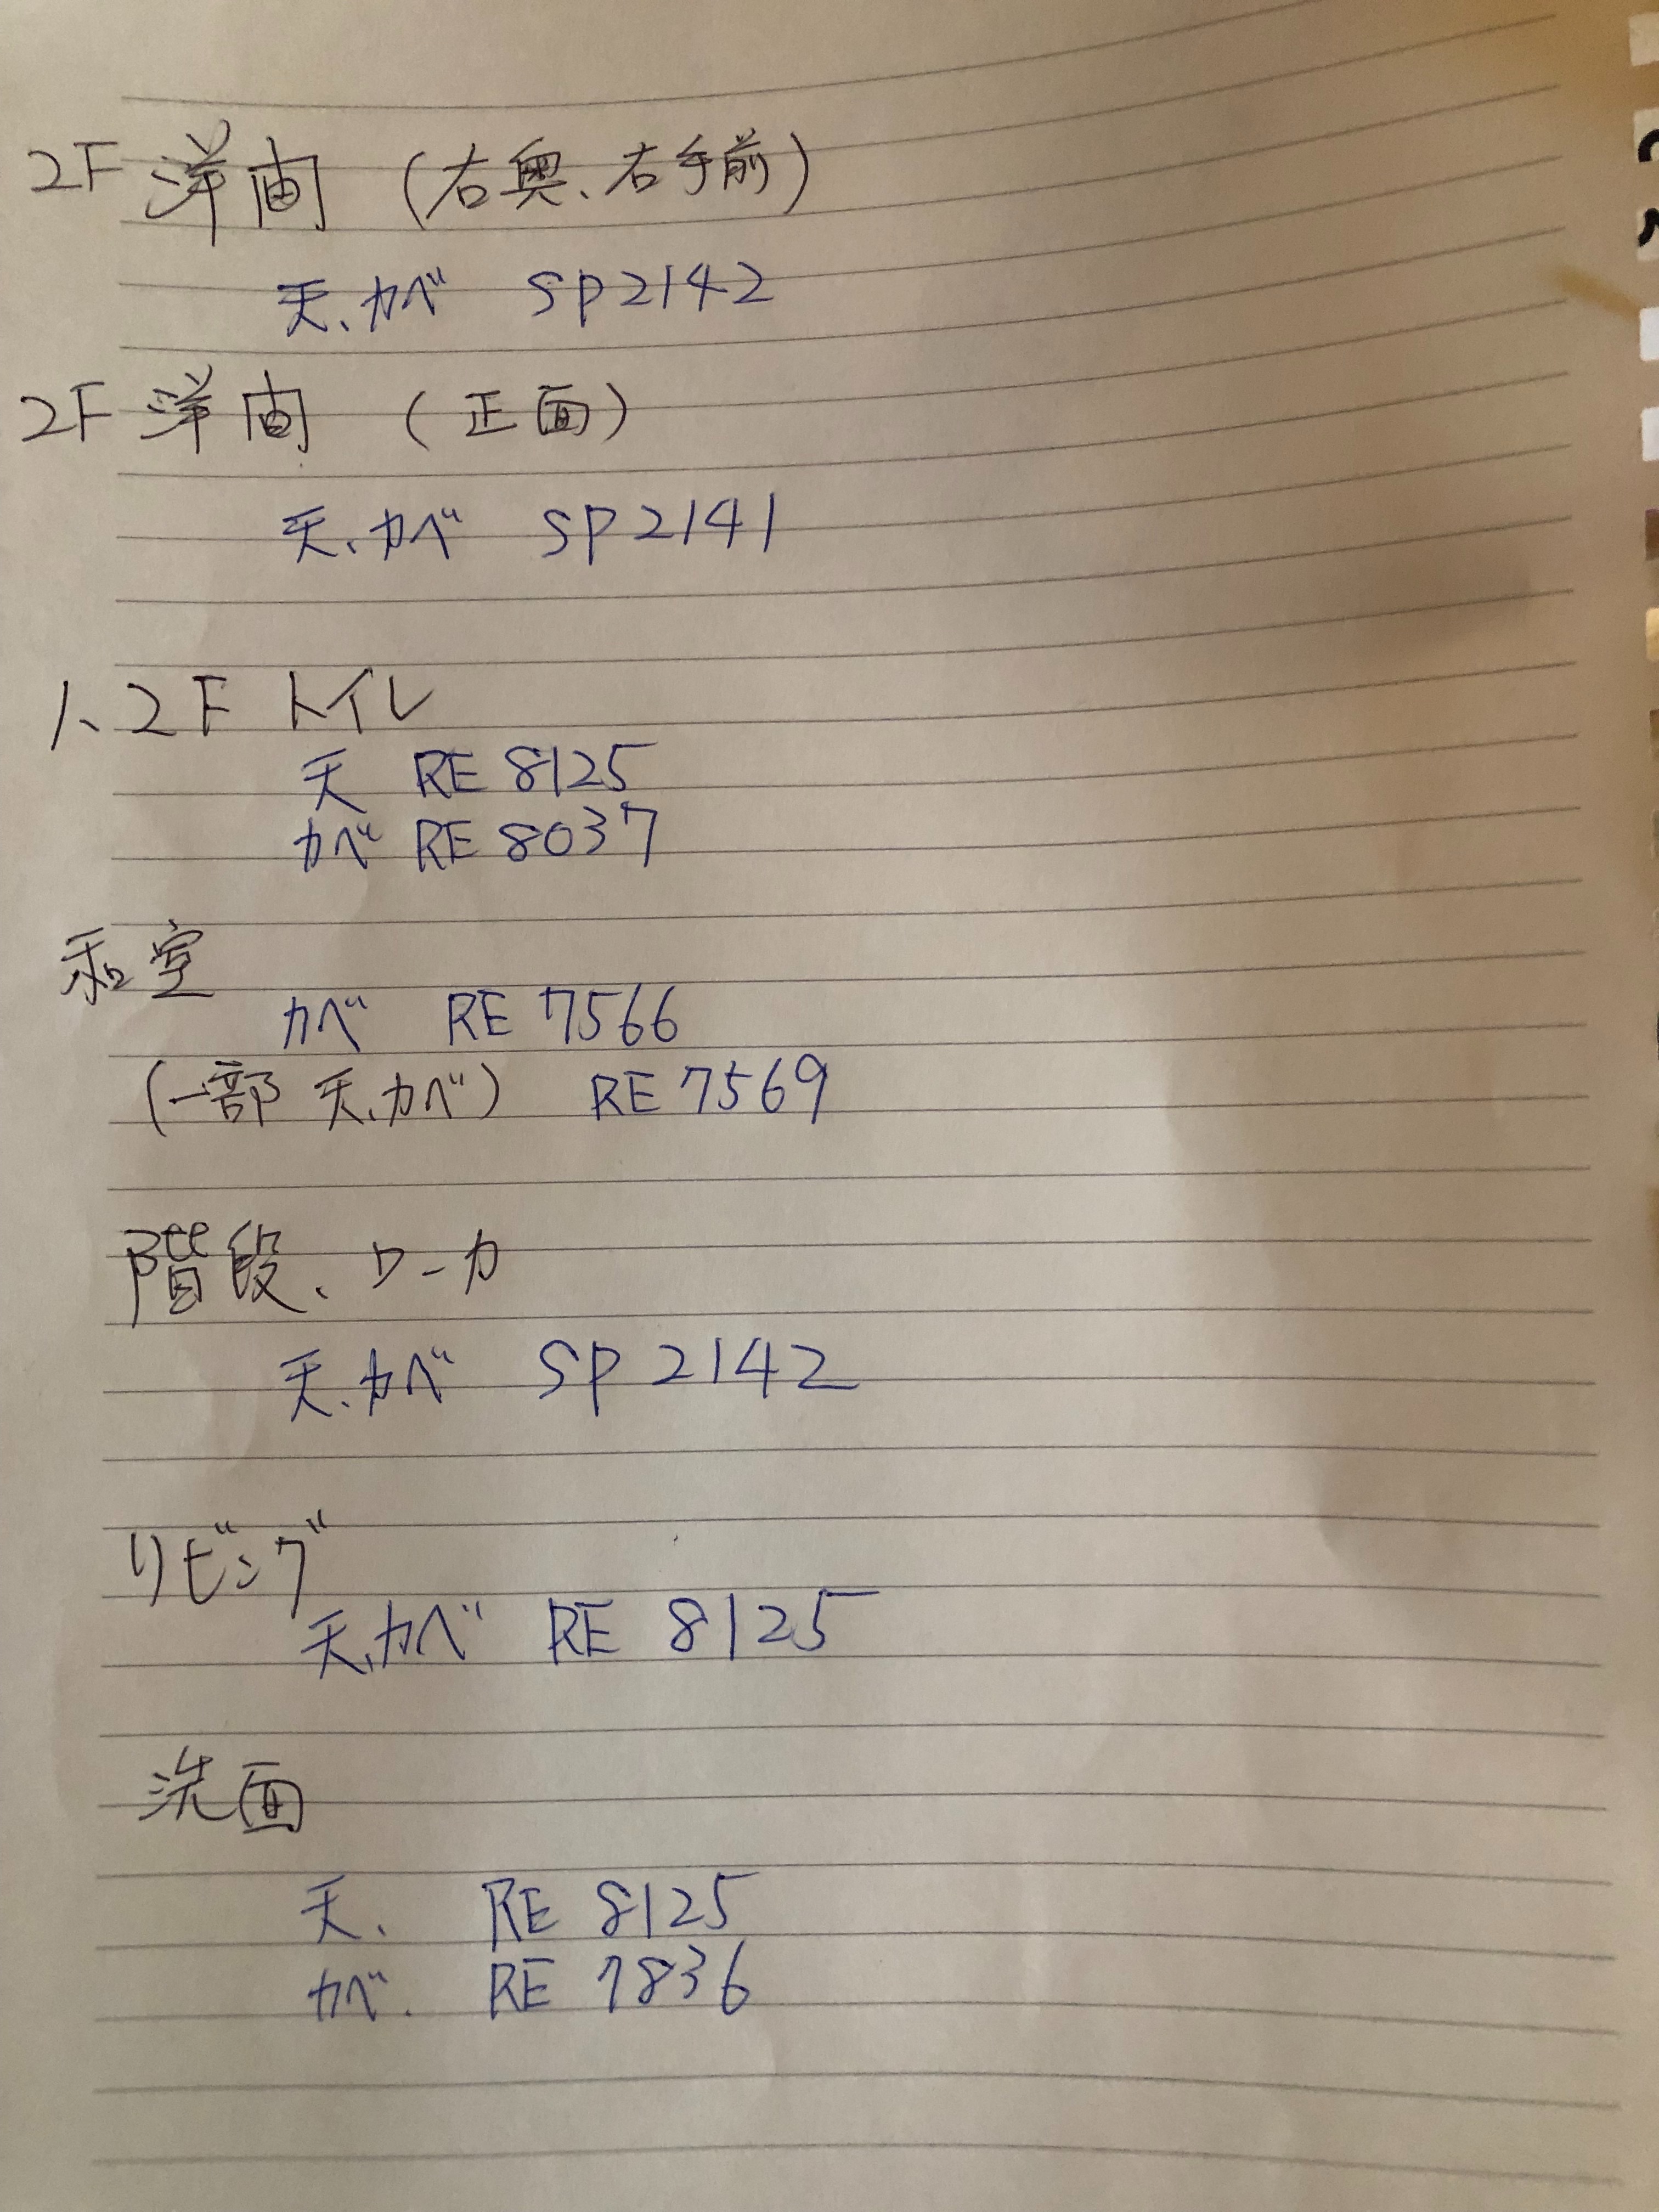 2F 洋間 (右奥、右手前)
天、カベ SP2142
2F 洋間 (正面)
天、カベ SP2141
1、2F トイレ
天 RE 8125
カベ RE 8037
和室
カベ RE 7566
(一部 天、カベ) RE 7569
階段、ローカ
天、カベ SP 2142
リビング
天、カベ RE 8125
洗面
天、 RE 8125
カベ. RE 7836